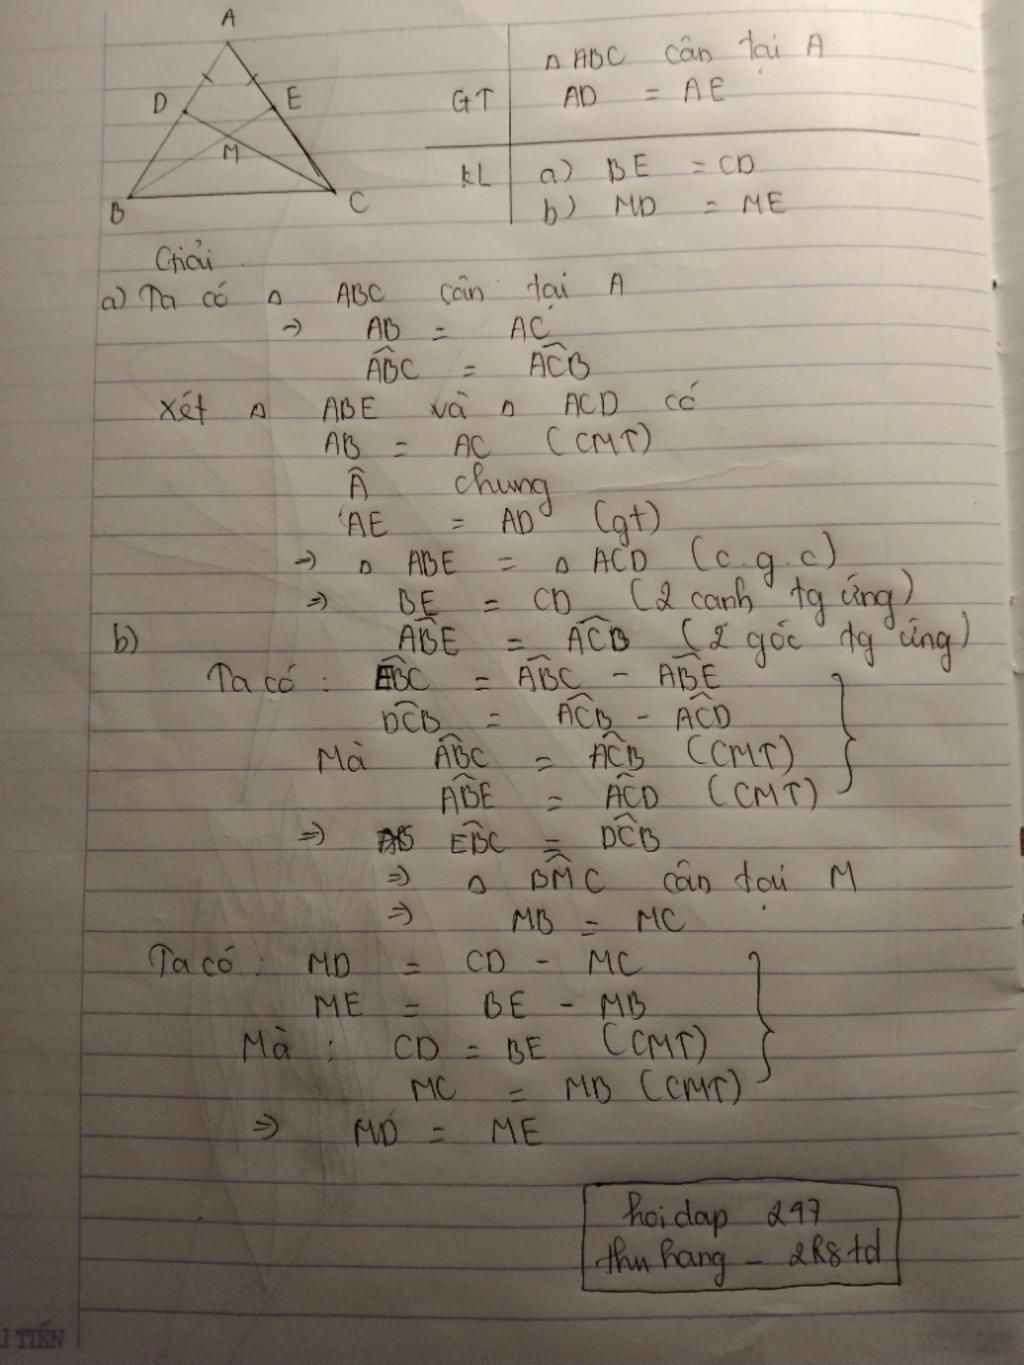 A
D
E
M
B
C
GT
△ ABC cân tại A
AD = AE
KL
a) BE = CD
b) MD = ME
Giải
a) Ta có △ ABC cân tại A
⇒ AB = AC
A͡BC = A͡CB
Xét △ ABE và △ ACD có
AB = AC (CMT)
Â chung
AE = AD (gt)
⇒ △ ABE = △ ACD (c.g.c)
⇒ BE = CD (2 canh tg ứng)
b) A͡BE = A͡CB (2 góc tg ứng)
Ta có : E͡BC = A͡BC - A͡BE
D͡CB = A͡CB - A͡CD
Mà A͡BC = A͡CB (CMT)
A͡BE = A͡CD (CMT)
⇒ E͡BC = D͡CB
⇒ △ B͡MC cân tại M
⇒ MB = MC
Ta có : MD = CD - MC
ME = BE - MB
Mà : CD = BE (CMT)
MC = MB (CMT)
⇒ MD = ME
hoidap 247
thu hang - 2k8td
TIẾN